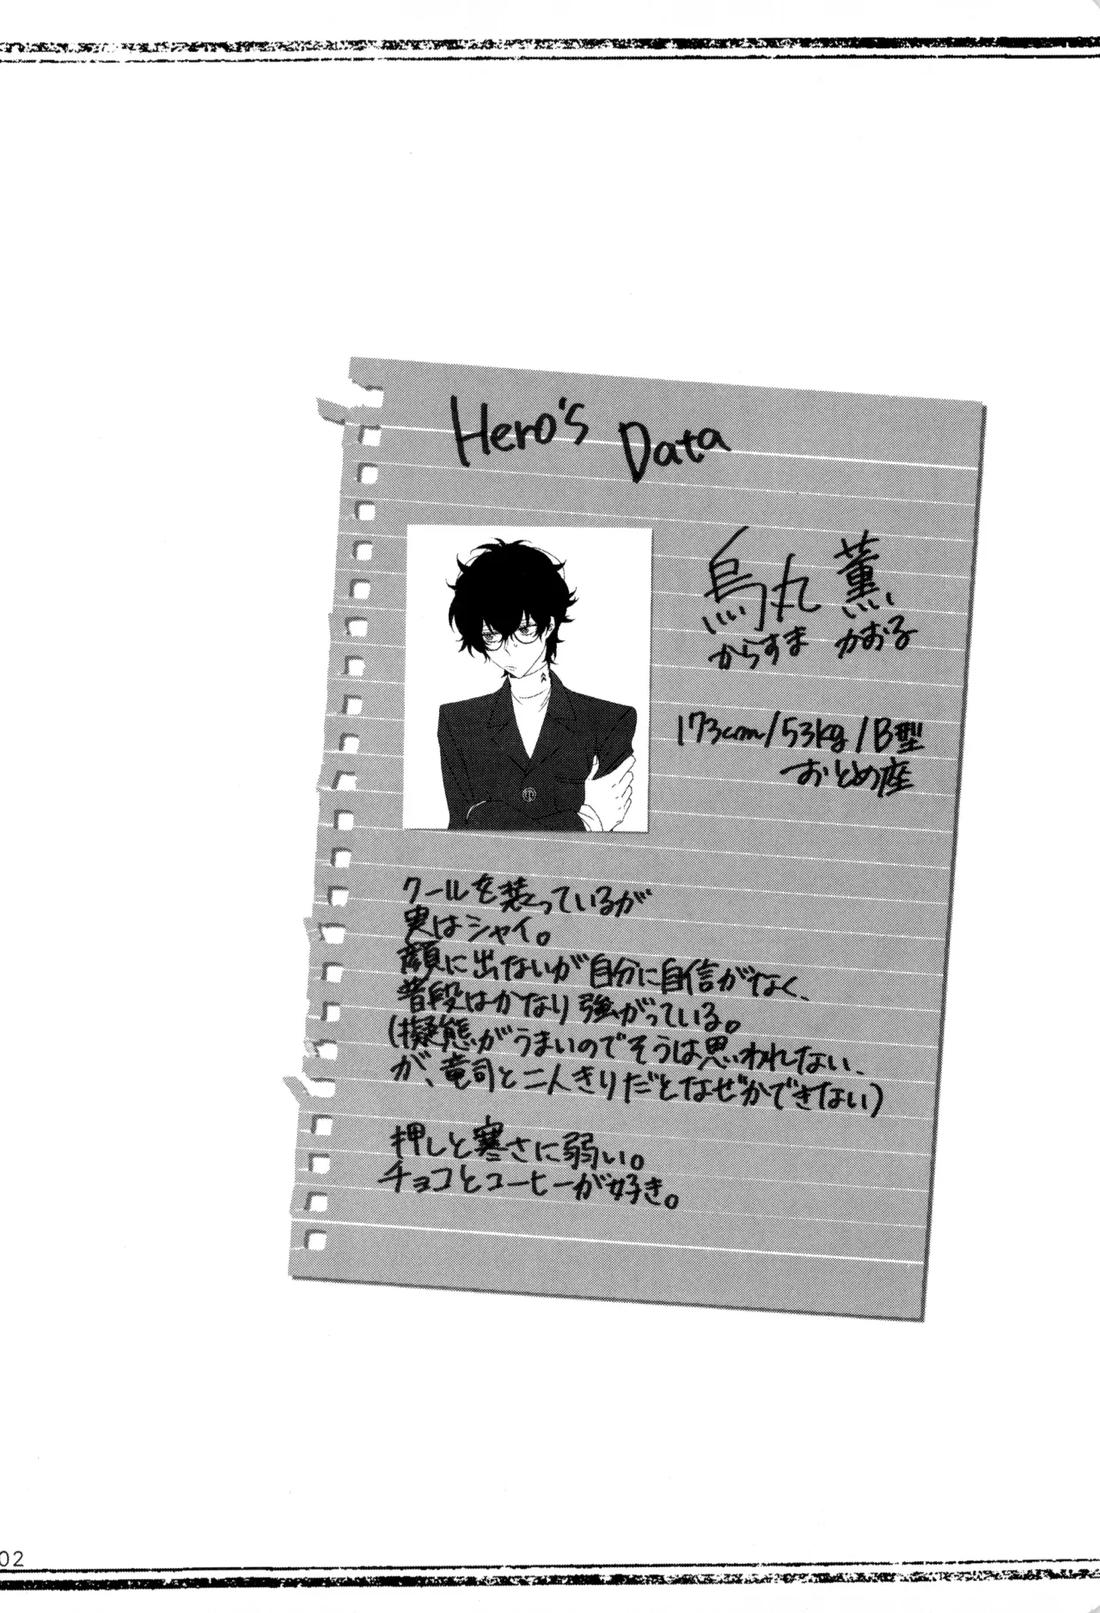 Hero's Data
烏丸 薫
からすま かおる
173cm/53kg/B型
おとめ座
クールを装っているが
実はシャイ。
顔に出ないが自分に自信がなく、
普段はかなり強がっている。
(擬態がうまいのでそうは思われない
が、竜司と二人きりだとなぜかできない)
押しと寒さに弱い。
チョコとコーヒーが好き。
02